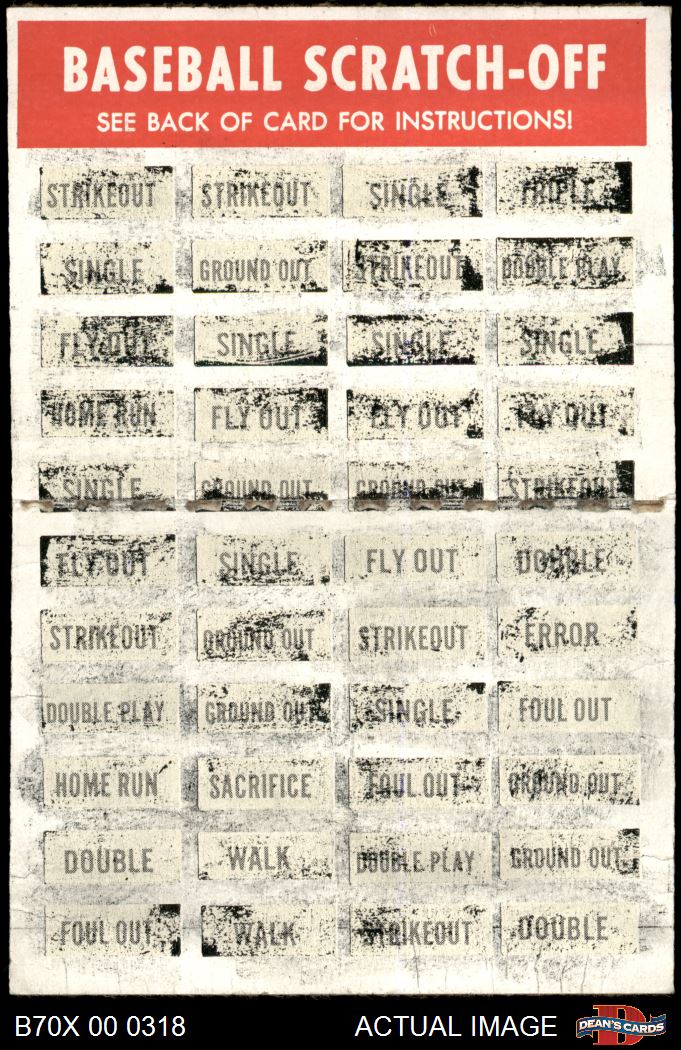 BASEBALL SCRATCH-OFF
SEE BACK OF CARD FOR INSTRUCTIONS!
STRIKEOUT STRIKEOUT SINGLE TRIPLE
SINGLE GROUND OUT STRIKEOUT DOUBLE PLAY
FLY OUT SINGLE SINGLE SINGLE
HOME RUN FLY OUT FLY OUT FLY OUT
SINGLE GROUND OUT GROUND OUT STRIKEOUT
FLY OUT SINGLE FLY OUT DOUBLE
STRIKEOUT GROUND OUT STRIKEOUT ERROR
DOUBLE PLAY GROUND OUT SINGLE FOUL OUT
HOME RUN SACRIFICE FOUL OUT GROUND OUT
DOUBLE WALK DOUBLE PLAY GROUND OUT
FOUL OUT WALK STRIKEOUT DOUBLE
B70X 00 0318 ACTUAL IMAGE DEAN'S CARDS